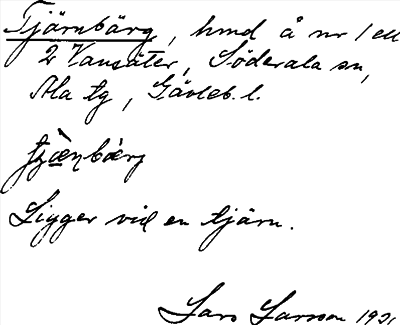 Tjärnbärg, hmd å nr 1 ell
2 Vansäter, Söderala sn,
Ala tg, Gävleb. l.
Ligger vid en tjärn.
Lars Larsson 19